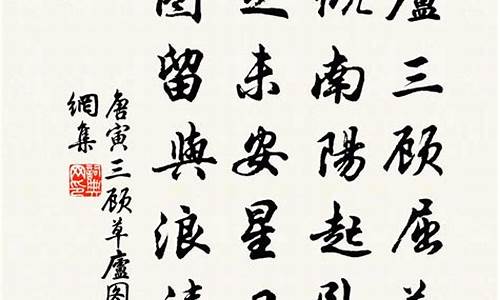 廬三顾屈
南陽起
未安星
圖留與浪
唐寅三顾草廬图
網集